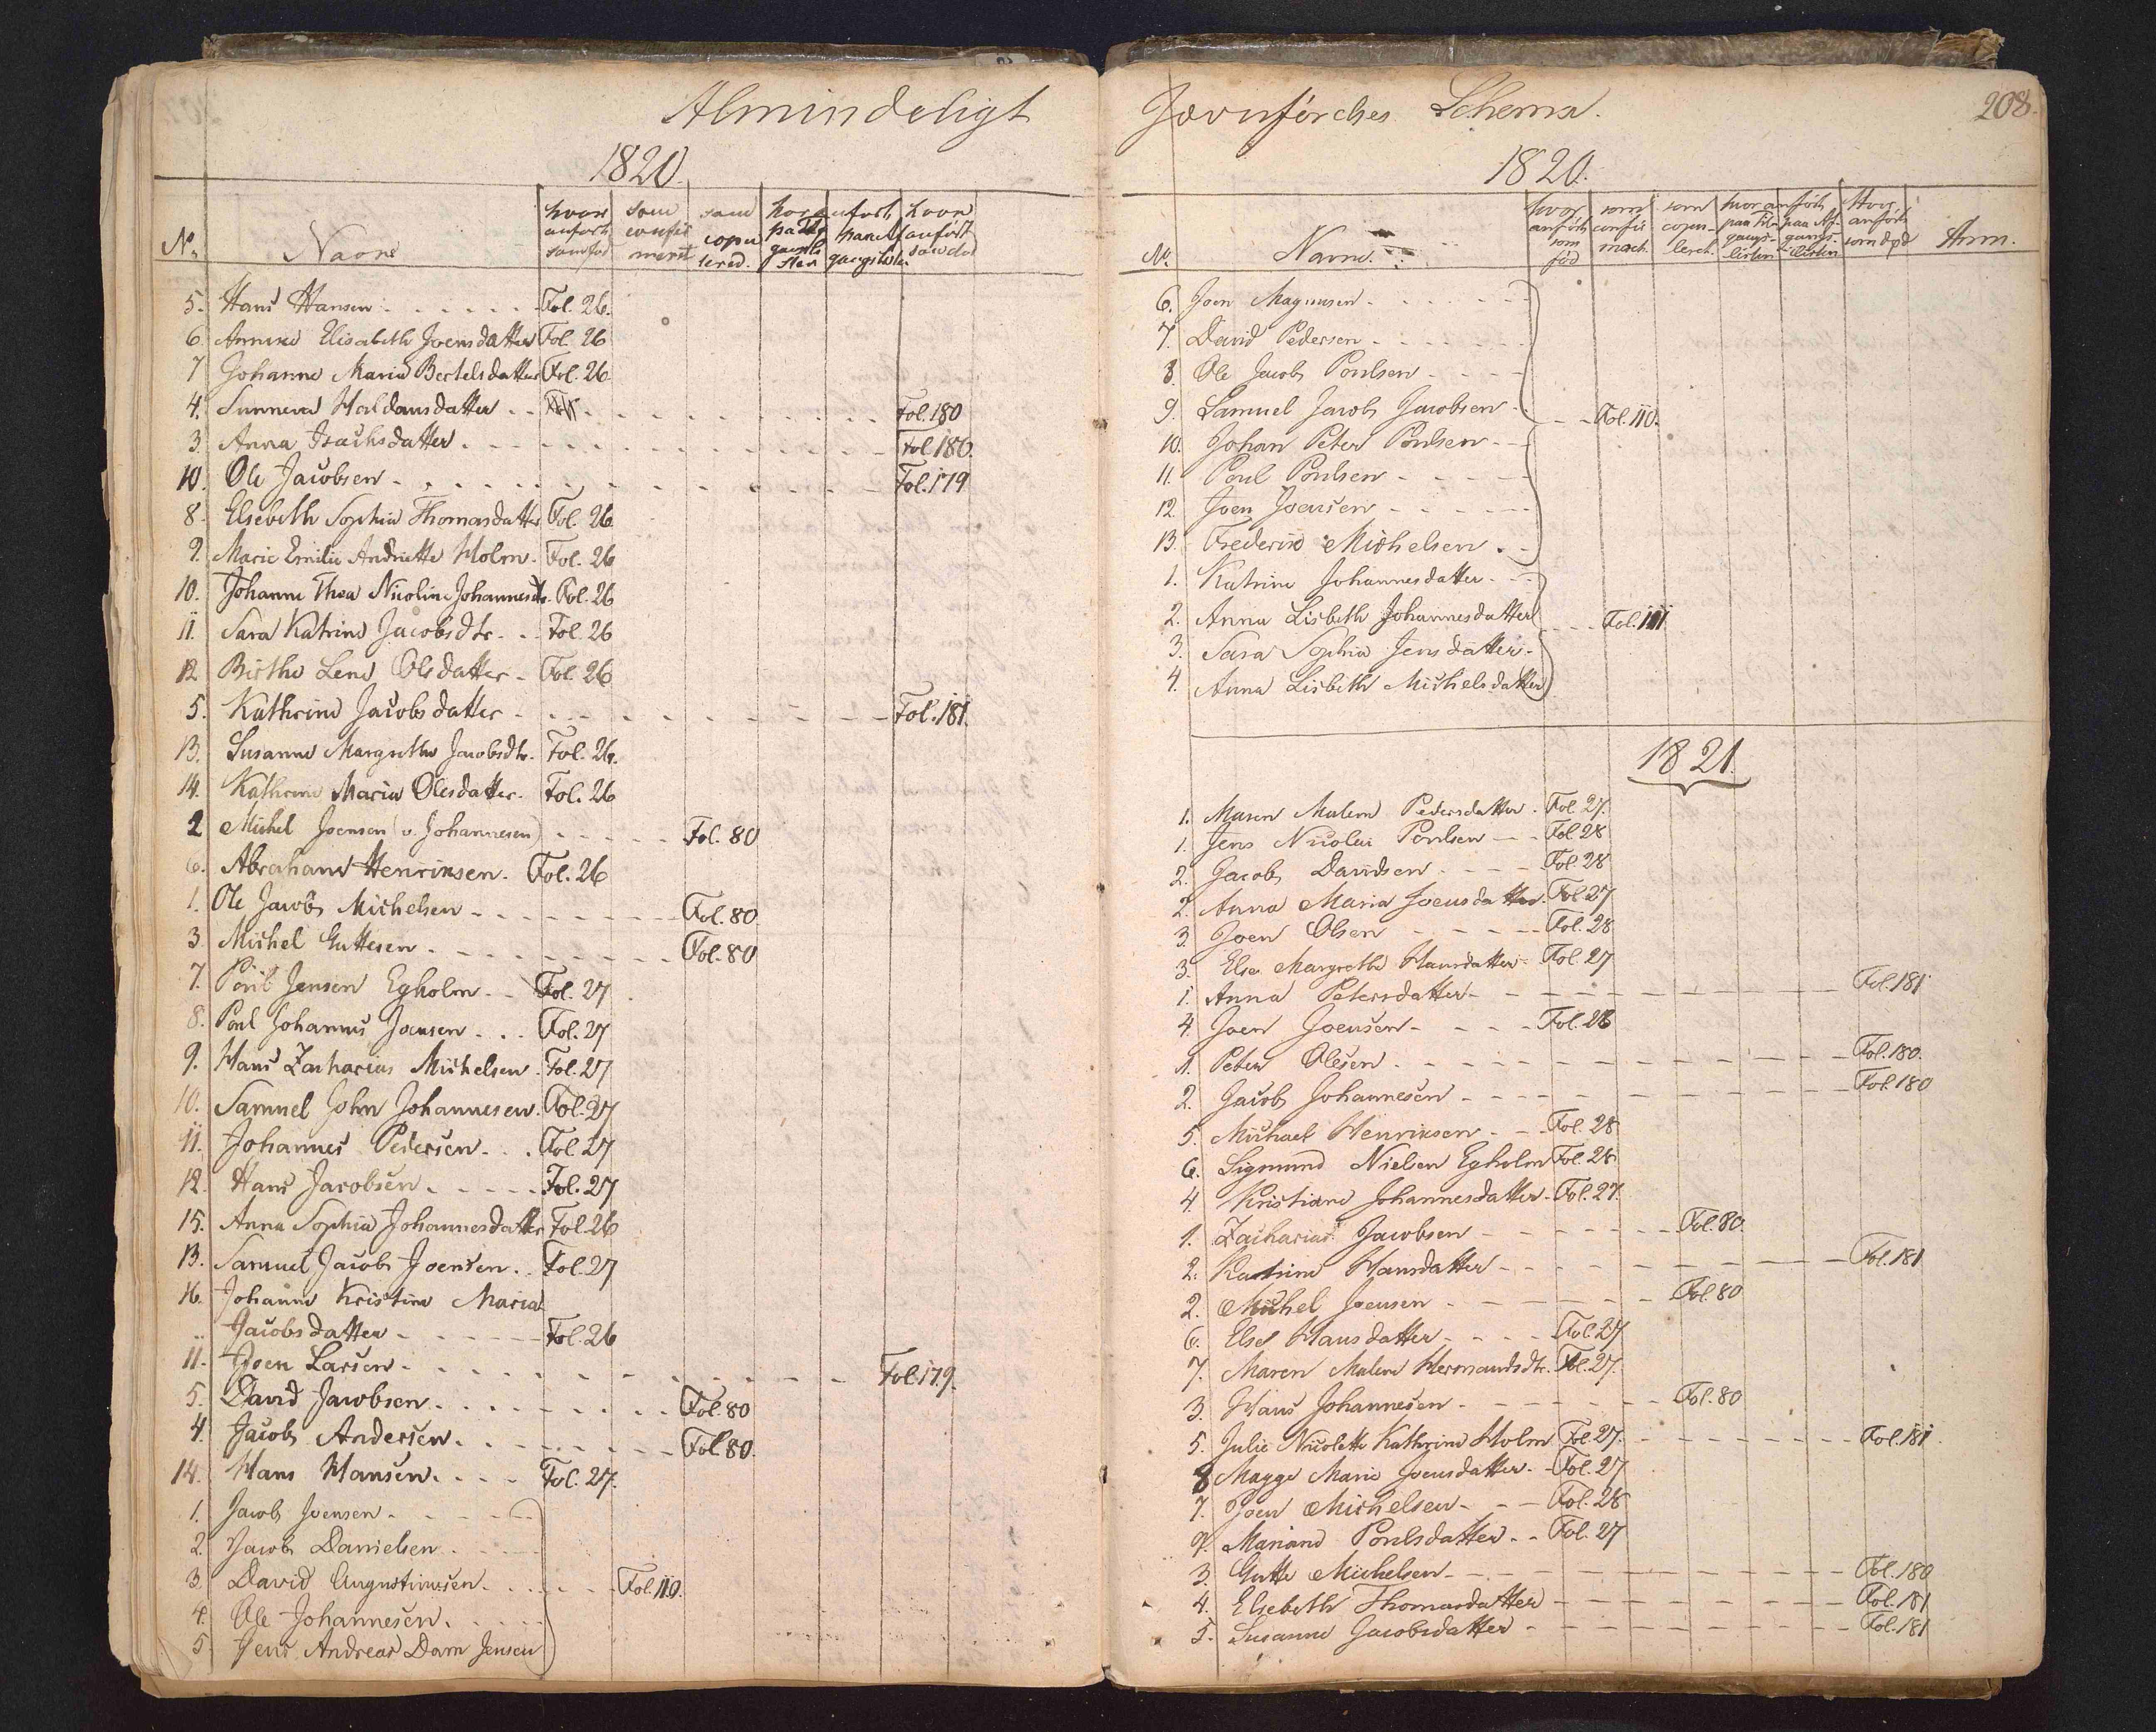 Almindeligt
1820.
No. Navne hvor anført som fød som confirmeret som copulered. hvor anført paa Tilgangslisten paa Afgangslisten hvor anført som død
5. Hans Hansen Fol. 26.
6. Elisabeth Joensdatter Fol. 26
7 Johanne Maria Bertelsdatter Fol. 26.
4. Sunneva Haldansdatter Fol. 180
3. Anna Isachsdatter Fol. 180.
10. Ole Jacobsen Fol. 179
8. Elsebeth Sophia Thomasdatter Fol. 26.
9. Marie Emilie Andriette Holm. Fol. 26
10. Johanne Thea Nicoline Johannesdtr. Fol. 26
11. Sara Katrine Jacobsdtr. Fol. 26
12 Birthe Lene Olsdatter Fol. 26
5. Kathrine Jacobsdatter Fol. 181.
13. Susanne Margrethe Jacobsdtr. Fol. 26.
14. Kathrine Maria Olesdatter. Fol. 26
2 Michel Joensen (v. Johannesen) Fol. 80
6. Abraham Henriksen. Fol. 26
1. Ole Jacob Michelsen Fol. 80.
3. Michel Guttesen Fol. 80
7. Poul Jensen Egholm Fol. 27
8. Poul Johannes Joensen Fol. 27
9. Hans Zacharias Michelsen. Fol. 27
10. Samuel John Johannesen. Fol. 27
11. Johannes Pedersen Fol. 27
12. Hans Jacobsen Fol. 27
15. Anna Sophia Johannesdatter Fol. 26
13. Samuel Jacob Joensen Fol. 27
16. Johanne Kristine Maria
Jacobsdatter Fol. 26
11. Joen Larsen Fol. 179.
5. David Jacobsen Fol. 80
4. Jacob Andersen Fol. 80.
14. Hans Hansen Fol. 27.
1. Jacob Joensen
2. Jacob Danielsen
3. David Augustinusen Fol. 110.
4. Ole Johannesen
5. Jens Andreas Dam Jensen
Jævnførelses Schema.
208.
1820.
No. Navne. hvor anført som fød som confirmeret som copuleret. hvor anført paa Tilgangslisten paa Afgangslisten Hvor anført som død Anm.
6. Joen Magnusen
7. David Pedersen
8. Ole Jacob Poulsen
9. Samuel Jacob Jacobsen Fol. 110.
10. Johan Peter Poulsen
11. Poul Poulsen
12. Joen Joensen
13. Frederik Michelsen
1. Katrine Johannesdatter
2. Anna Lisbeth Johannesdatter Fol. 111
3. Sara Sophia Jensdatter
4. Anna Lisbeth Michelsdatter
1821.
1. Maren Malene Pedersdatter. Fol. 27.
1. Jens Nicolai Poulsen Fol. 28
2. Jacob Davidsen Fol. 28
2. Anna Maria Joensdatter. Fol. 27
3. Joen Olsen Fol. 28
3. Else Margrethe Hansdatter Fol. 27
1. Anna Petersdatter Fol. 181
4. Joen Joensen Fol. 28
1. Peter Olesen Fol. 180.
2. Jacob Johannesen Fol. 180
5. Michael Henriksen Fol. 28
6. Sigmund Nielsen Egholm Fol. 28
4. Kristiane Johannesdatter. Fol. 27.
1. Zacharias Jacobsen Fol. 80.
2. Katrine Hansdatter Fol. 181
2. Michel Joensen Fol. 80
6. Else Hansdatter Fol. 27
7. Maren Malene Hermandsdtr. Fol. 27.
3. Hans Johannesen Fol. 80
5. Julie Nicolette Kathrine Holm Fol. 27. Fol. 181
8 Magge Marie Joensdatter Fol. 27
7. Joen Michelsen Fol. 28
9. Mariane Poulsdatter Fol. 27
3. Gutte Michelsen Fol. 180
4. Elsebeth Thomasdatter Fol. 181
5. Susanne Jacobsdatter Fol. 181